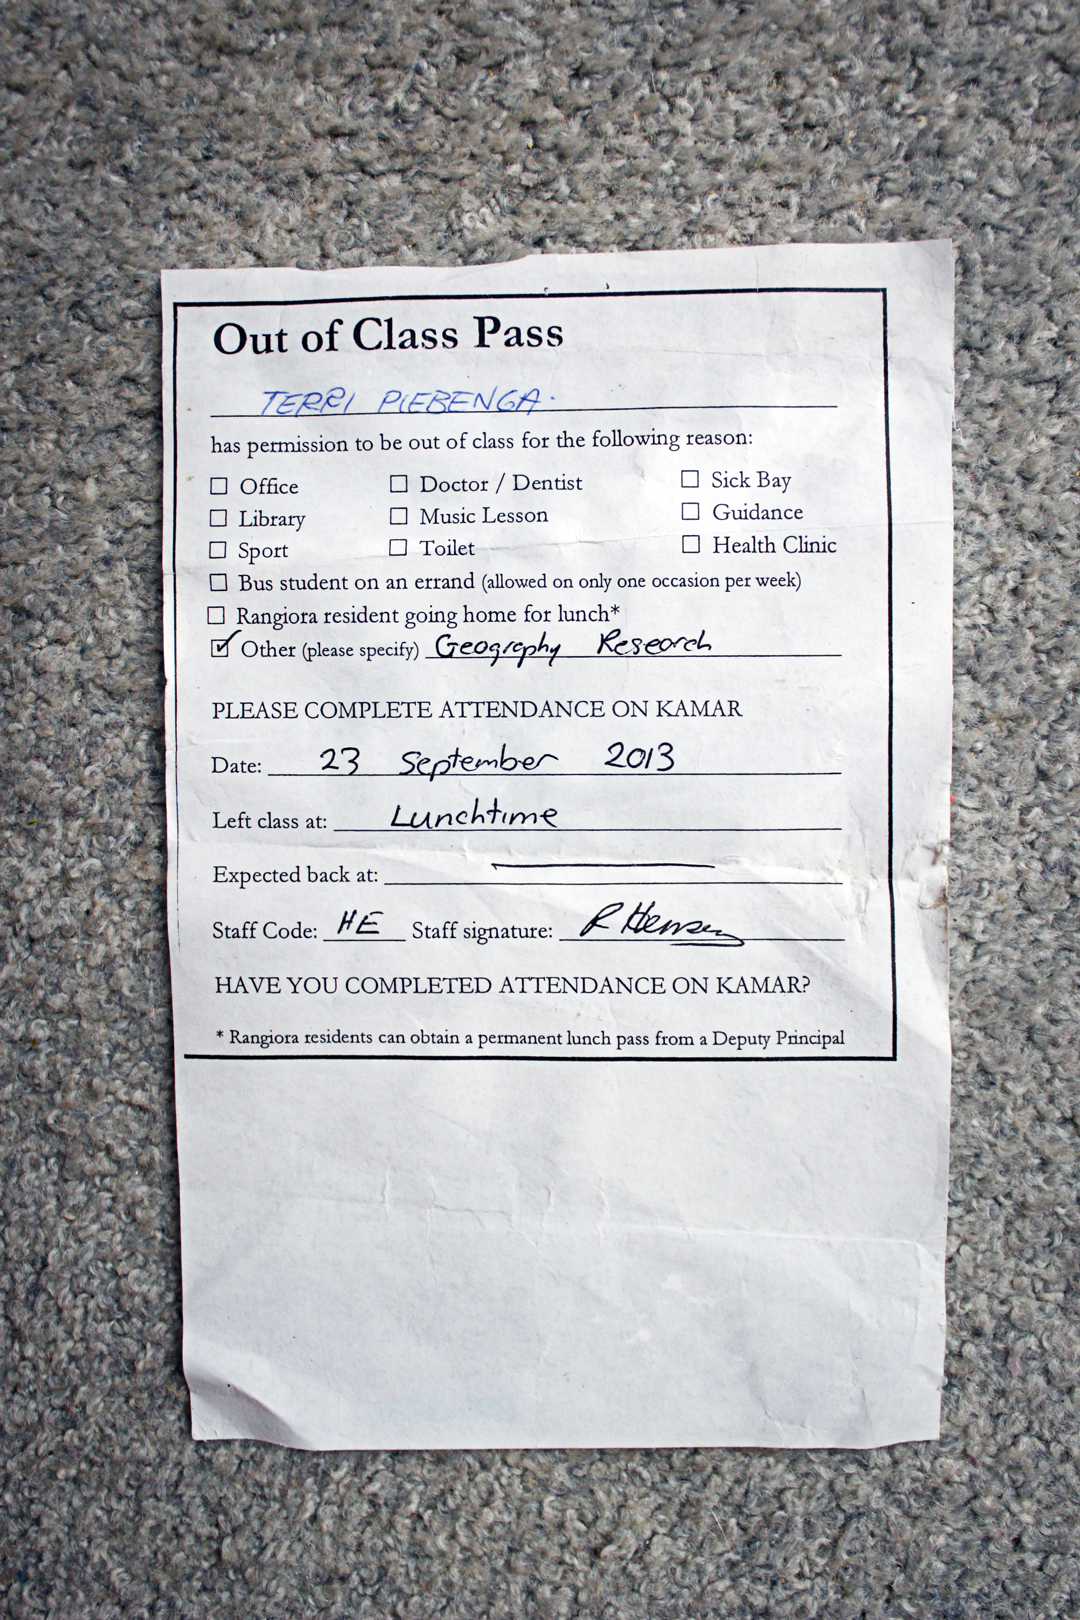 Out of Class Pass
TERRI PIEBENGA.
has permission to be out of class for the following reason:
☐ Office ☐ Doctor / Dentist ☐ Sick Bay
☐ Library ☐ Music Lesson ☐ Guidance
☐ Sport ☐ Toilet ☐ Health Clinic
☐ Bus student on an errand (allowed on only one occasion per week)
☐ Rangiora resident going home for lunch*
☑ Other (please specify) Geography Research
PLEASE COMPLETE ATTENDANCE ON KAMAR
Date: 23 September 2013
Left class at: Lunchtime
Expected back at: —
Staff Code: HE Staff signature: R
HAVE YOU COMPLETED ATTENDANCE ON KAMAR?
* Rangiora residents can obtain a permanent lunch pass from a Deputy Principal